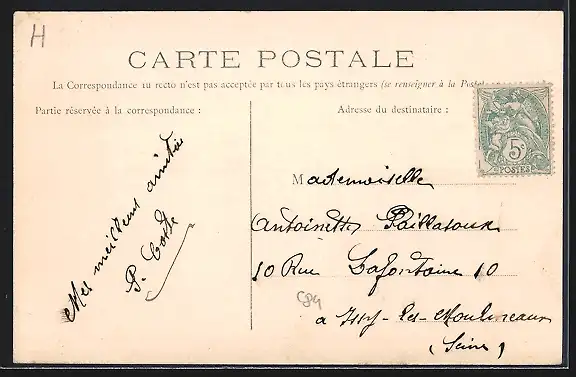 H
CARTE POSTALE
La Correspondance au recto n'est pas acceptée par tous les pays étrangers (se renseigner à la Poste
Partie réservée à la correspondance :
Adresse du destinataire :
5c
POSTES
Mes meilleurs amitiés
P. Coste
Mademoiselle
Antoinette
10 Rue Lafontaine 10
à Issy-les-Moulineaux
(Seine)